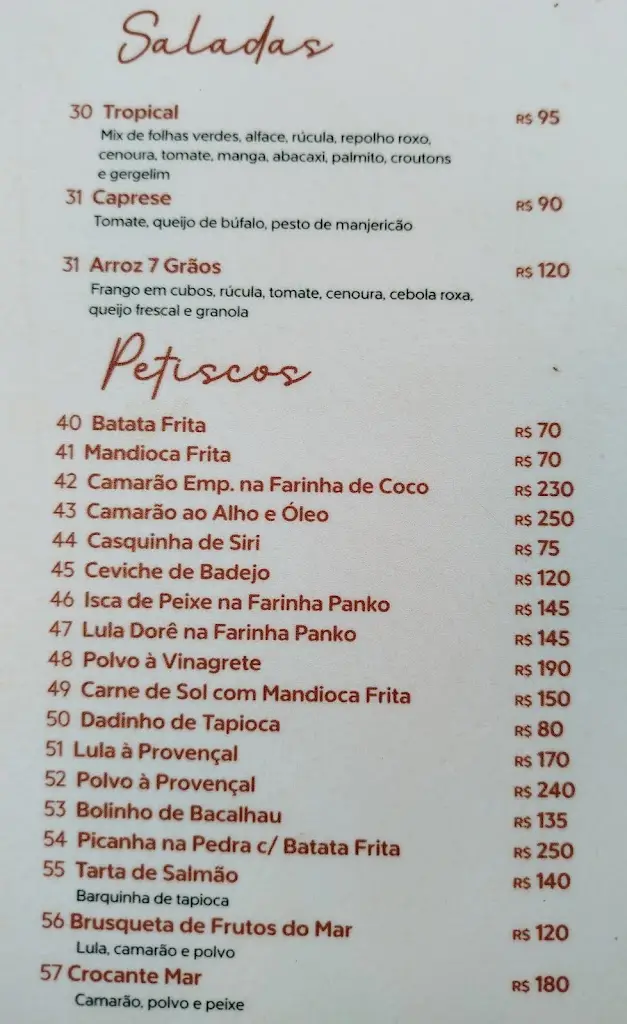 Saladas
30 Tropical R$ 95
Mix de folhas verdes, alface, rúcula, repolho roxo,
cenoura, tomate, manga, abacaxi, palmito, croutons
e gergelim
31 Caprese R$ 90
Tomate, queijo de búfalo, pesto de manjericão
31 Arroz 7 Grãos R$ 120
Frango em cubos, rúcula, tomate, cenoura, cebola roxa,
queijo frescal e granola
Petiscos
40 Batata Frita R$ 70
41 Mandioca Frita R$ 70
42 Camarão Emp. na Farinha de Coco R$ 230
43 Camarão ao Alho e Óleo R$ 250
44 Casquinha de Siri R$ 75
45 Ceviche de Badejo R$ 120
46 Isca de Peixe na Farinha Panko R$ 145
47 Lula Dorê na Farinha Panko R$ 145
48 Polvo à Vinagrete R$ 190
49 Carne de Sol com Mandioca Frita R$ 150
50 Dadinho de Tapioca R$ 80
51 Lula à Provençal R$ 170
52 Polvo à Provençal R$ 240
53 Bolinho de Bacalhau R$ 135
54 Picanha na Pedra c/ Batata Frita R$ 250
55 Tarta de Salmão R$ 140
Barquinha de tapioca
56 Brusqueta de Frutos do Mar R$ 120
Lula, camarão e polvo
57 Crocante Mar R$ 180
Camarão, polvo e peixe